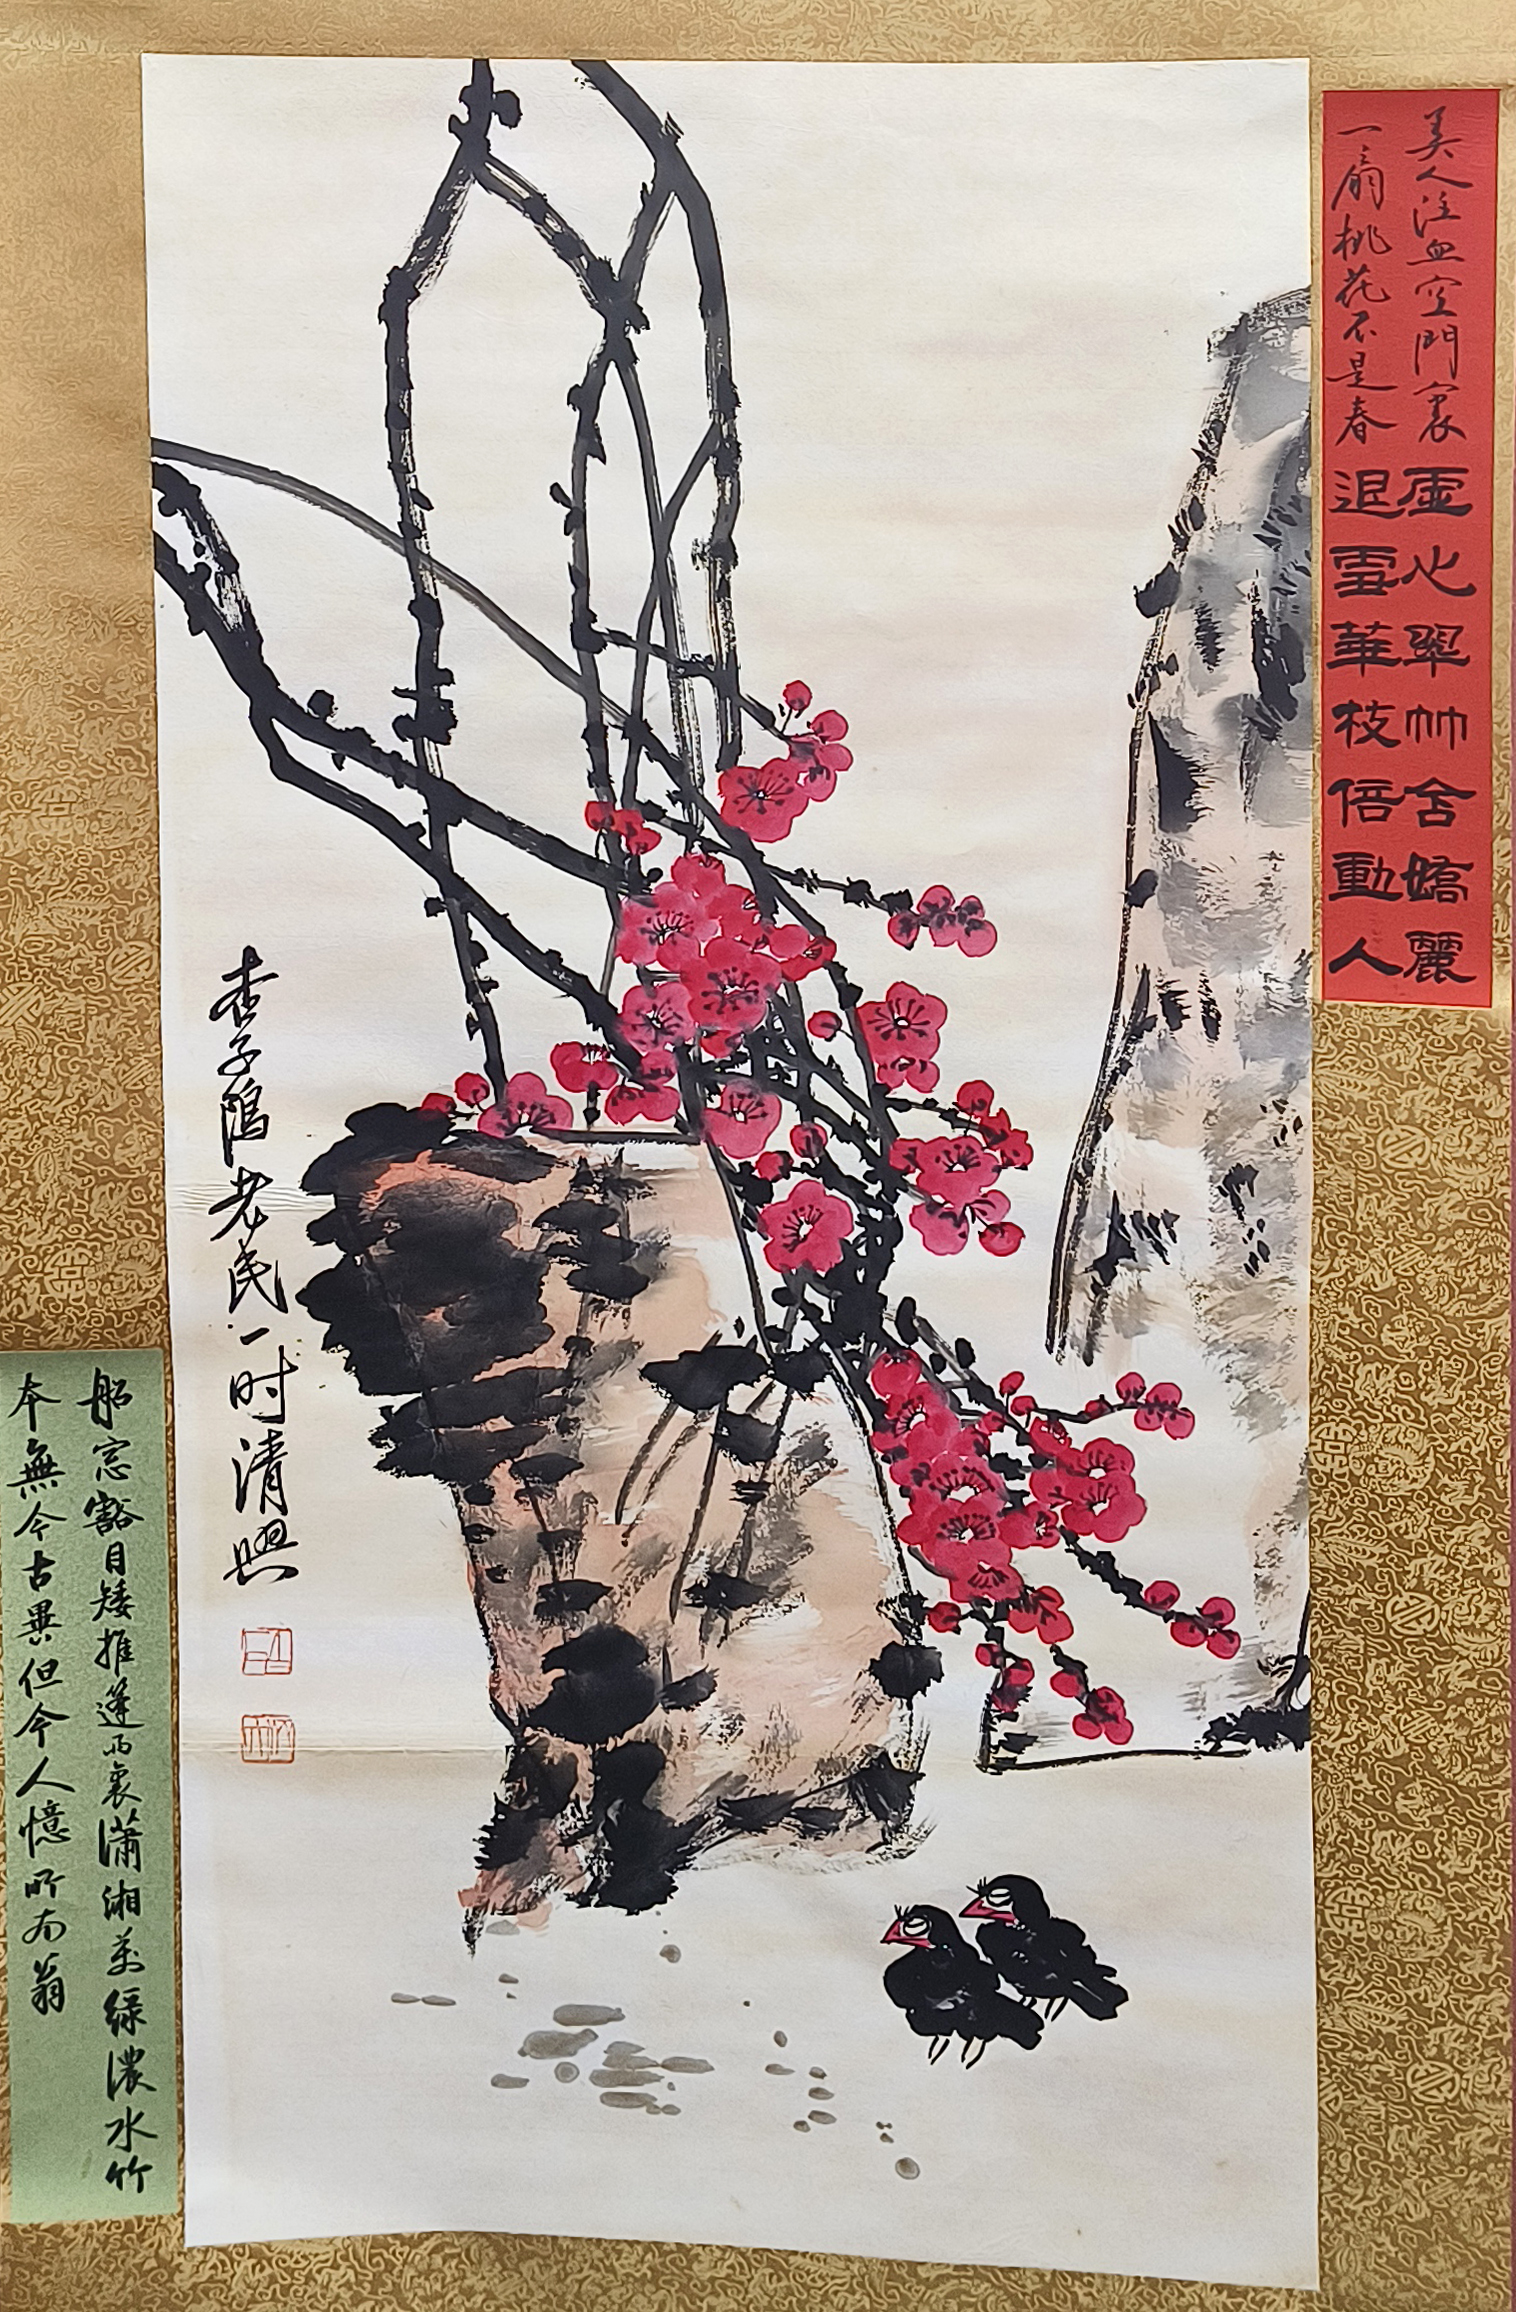 美人注血空門裏
一扇桃花不是春
虛心翠竹含嬌麗
退雪華枝倍動人
杏子隝老民一时清興
船窓豁目矮推蓬雨裏瀟湘萬綠濃水竹
本無今古異但今人憶所南翁